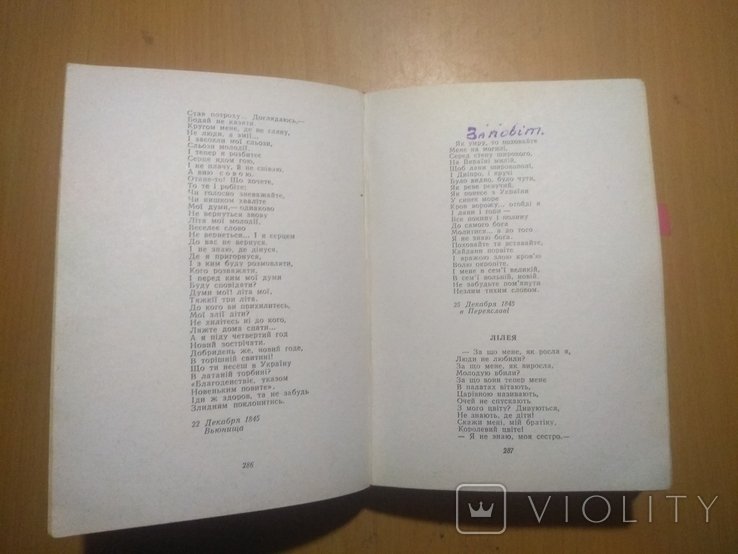 Став потроху... Доглядаюсь,—
Бодай не казати.
Кругом мене, де не гляну,
Не люди, а змії...
І засохли мої сльози,
Сльози молодії.
І тепер я розбитеє
Серце ядом гою,
І не плачу, й не співаю,
А вию совою.
Отаке-то! Що хочете,
То те і робіте:
Чи голосно зневажайте,
Чи нишком хваліте
Мої думи,— однаково
Не вернуться знову
Літа мої молодії,
Веселеє слово
Не вернеться... І я серцем
До вас не вернуся.
І не знаю, де дінуся,
Де я пригорнуся,
І з ким буду розмовляти,
Кого розважати,
І перед ким мої думи
Буду сповідати?
Думи мої! літа мої,
Тяжкії три літа,
До кого ви прихилитесь,
Мої злії діти?
Не хилітесь ні до кого,
Ляжте дома спати...
А я піду четвертий год
Новий зострічати.
Добридень же, новий годе,
В торішній свитині!
Що ти несеш в Україну
В латаній торбині?
«Благоденствіє, указом
Новеньким повите».
Іди ж здоров, та не забудь
Злидням поклонитись.
22 Декабря 1845
Вьюнища
286
Заповіт.
Як умру, то поховайте
Мене на могилі,
Серед степу широкого,
На Вкраїні милій,
Щоб лани широкополі,
І Дніпро, і кручі
Було видно, було чути,
Як реве ревучий.
Як понесе з України
У синєє море
Кров ворожу... отойді я
І лани і гори —
Все покину і полину
До самого бога
Молитися... а до того
Я не знаю бога.
Поховайте та вставайте,
Кайдани порвіте
І вражою злою кров'ю
Волю окропіте.
І мене в сем'ї великій,
В сем'ї вольній, новій,
Не забудьте пом'янути
Незлим тихим словом.
25 Декабря 1845
в Переяславі
ЛІЛЕЯ
— За що мене, як росла я,
Люди не любили?
За що мене, як виросла,
Молодую вбили?
За що вони тепер мене
В палатах вітають,
Царівною називають,
Очей не спускають
З мого цвіту? Дивуються,
Не знають, де діти!
Скажи мені, мій братіку,
Королевий цвіте!
— Я не знаю, моя сестро.—
287
VIOLITY